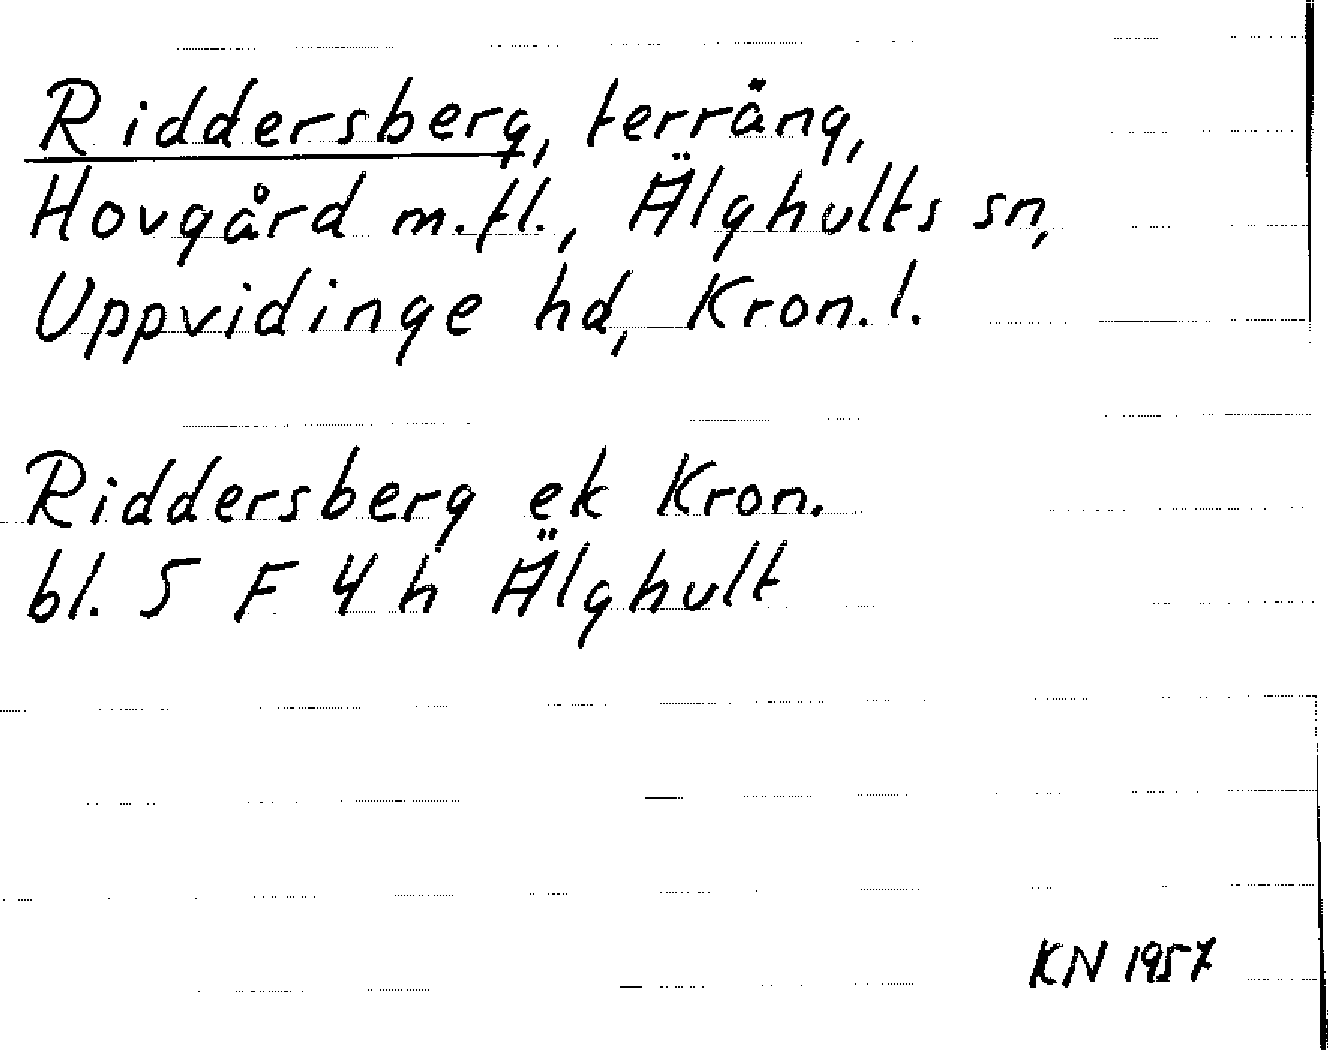 Riddersberg, terräng,
Hovgård m.fl., Älghults sn,
Uppvidinge hd, Kron.l.
Riddersberg ek Kron.
bl. 5 F 4 h Älghult
KN 1957